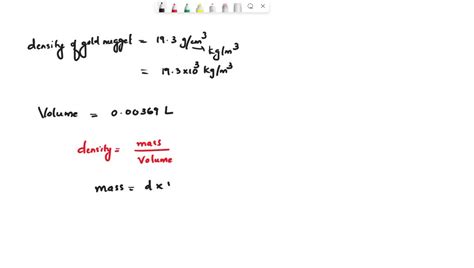 density of gold nugget = 19.3 g/cm³
kg/m³
= 19.3×10³ kg/m³
Volume = 0.00369 L
density = mass
Volume
mass = d ×